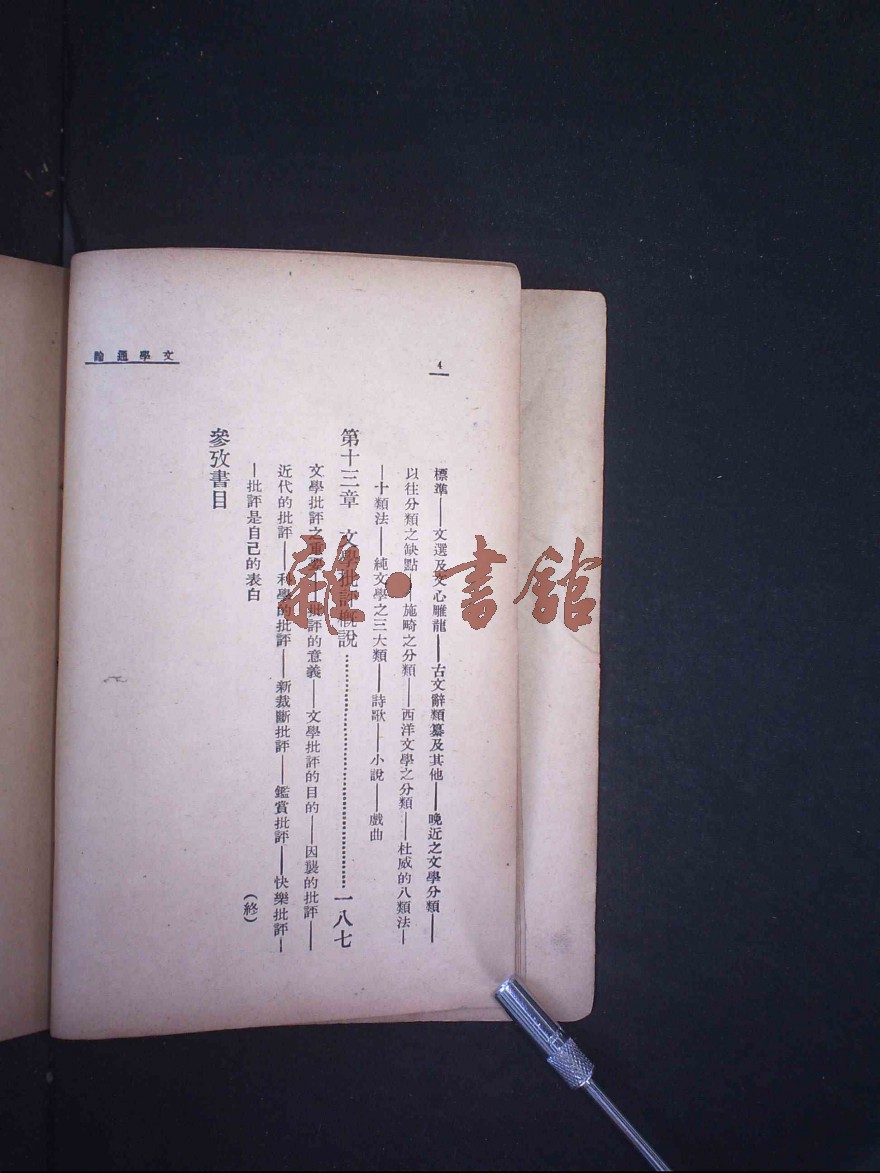 4
文學通論
標準——文選及文心雕龍——古文辭類纂及其他——晚近之文學分類——
以往分類之缺點——施畸之分類——西洋文學之分類——杜威的八類法—
—十類法——純文學之三大類——詩歌——小說——戲曲
第十三章 文學批評概說…………一八七
文學批評之重要——批評的意義——文學批評的目的——因襲的批評——
近代的批評——科學的批評——新裁斷批評——鑑賞批評——快樂批評—
—批評是自己的表白
(終)
參攷書目
雜·書館